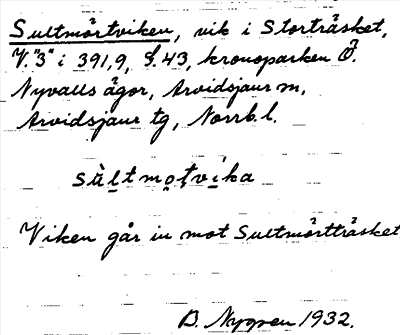 Sultmörtviken, vik i Storträsket,
V. "3" i 391,9, S. 43, kronoparken Ö.
Nyvalls ägor, Arvidsjaur sn,
Arvidsjaur tg, Norrb. l.
sùltmo̤tvika
Viken går in mot Sultmörtträsket
B. Nygren 1932.